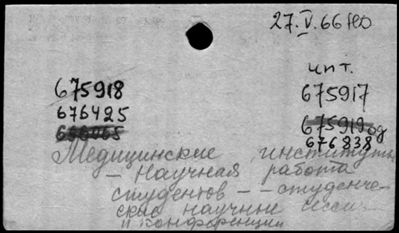 27.V.66
чит.
675918 675917
676425 675919
676838
Медицинские институты
— Научная работа
студентов — — студенче-
ские научные сесси
и конференции